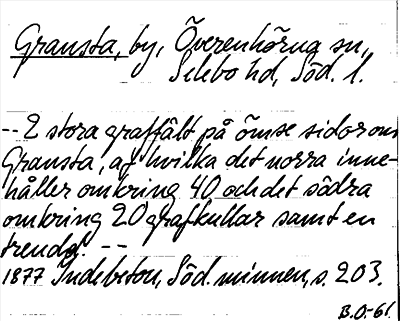 Gransta, by, Överenhörna sn,
Selebo hd, Söd. l.
-- 2 stora graffält på ömse sidor om
Gransta, af hvilka det norra inne-
håller omkring 40 och det södra
omkring 20 grafkullar samt en
treudd. --
1877 Indebetou, Söd. minnen, s. 203.
B.O-61.